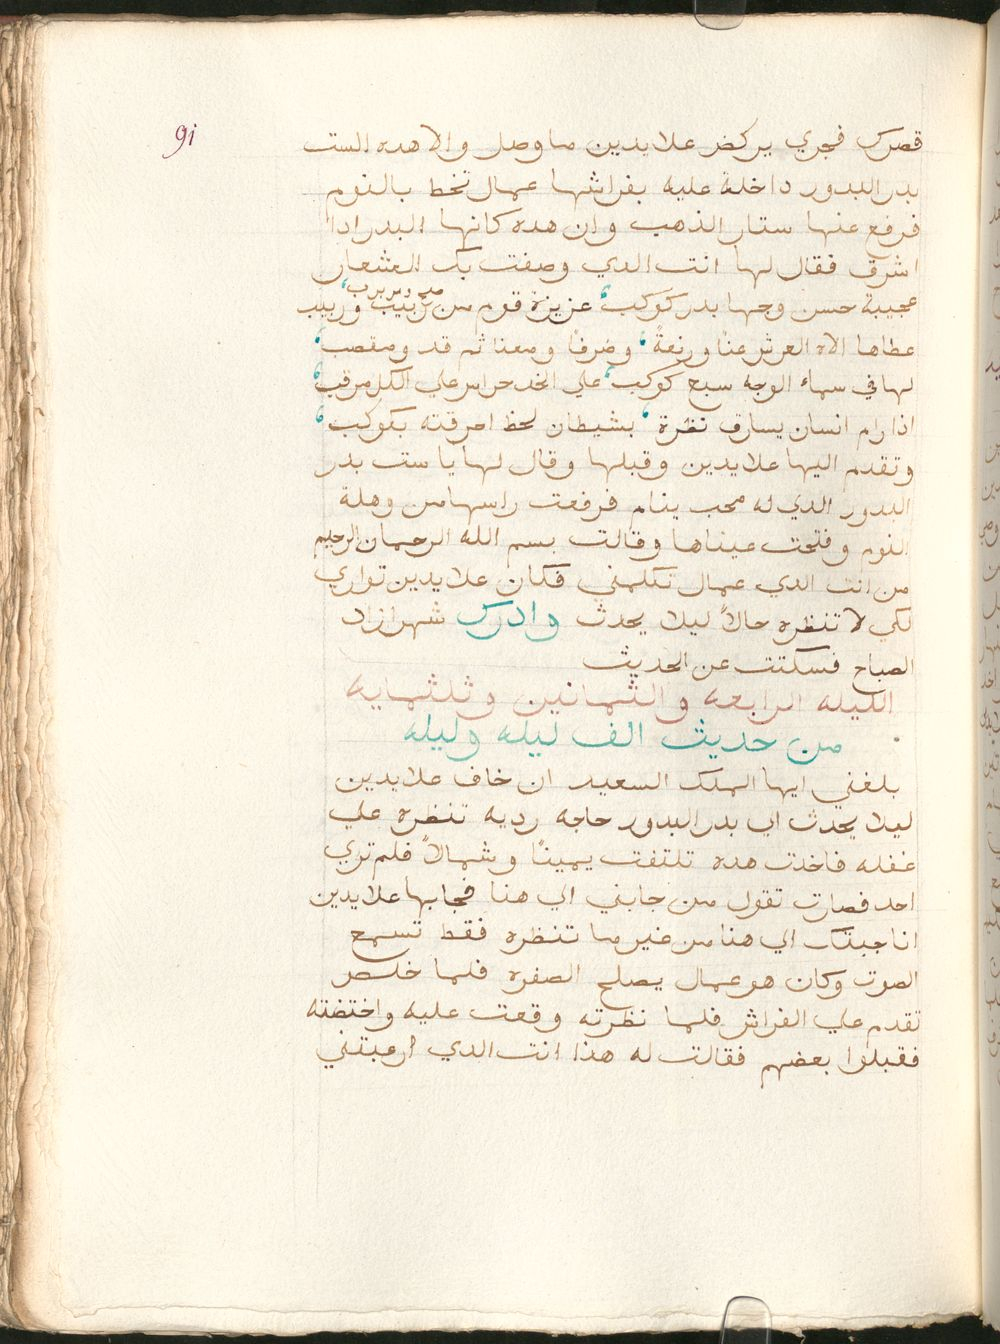 91
قصرك فجري يركض علايدين ما وصل والا هده الست
بدر البدور داخلة عليه بفراشها عمال تخط بالنوم
فرفع عنها ستار الذهب وان هده كانها البدر ادا
اشرق فقال لها انت الدي وصفت بك الشعار
عجيبة حسن وجها بدر كوكب، عزيزة قوم من زبيب وربيب
عطاها الاه العرش عنا ورنعةً، وضرفًا ومعنا ثم قد ومقصب،
لها في سماء الوجه سبع كوكب، علي الخد حراس علي الكل مرقب،
اذا رام انسان يسارق نظرة، بشيطان لحظ احرقته بكوكب،
وتقدم اليها علايدين وقبلها وقال لها يا ست بدر
البدور الدي له محب ينام فرفعت راسها من وهلة
النوم وفتحت عيناها وقالت بسم الله الرحمان الرحيم
من انت الدي عمال تكلمني فكان علايدين تواري
لكي لا تنظره حالاً ليلا يحدث وادرك شهرازاد
الصباح فسكتت عن الحديث
الليله الرابعه والثمانين وثلثمايه
من حديث الف ليله وليله
بلغني ايها الملك السعيد ان خاف علايدين
ليلا يحدث الي بدر البدور حاجه رديه تنظره علي
غفله فاخدت هده تلتفت يمينًا وشمالاً فلم تري
احد فصارت تقول من جابني الي هنا فجابها علايدين
انا جبتك الي هنا من غير ما تنظره فقط تسمع
الصوت وكان هو عمال يصلح الصفره فلما خلص
تقدم علي الفراش فلما نظرته وقعت عليه واختضنته
فقبلوا بعضهم فقالت له هذا انت الدي ارعبتني